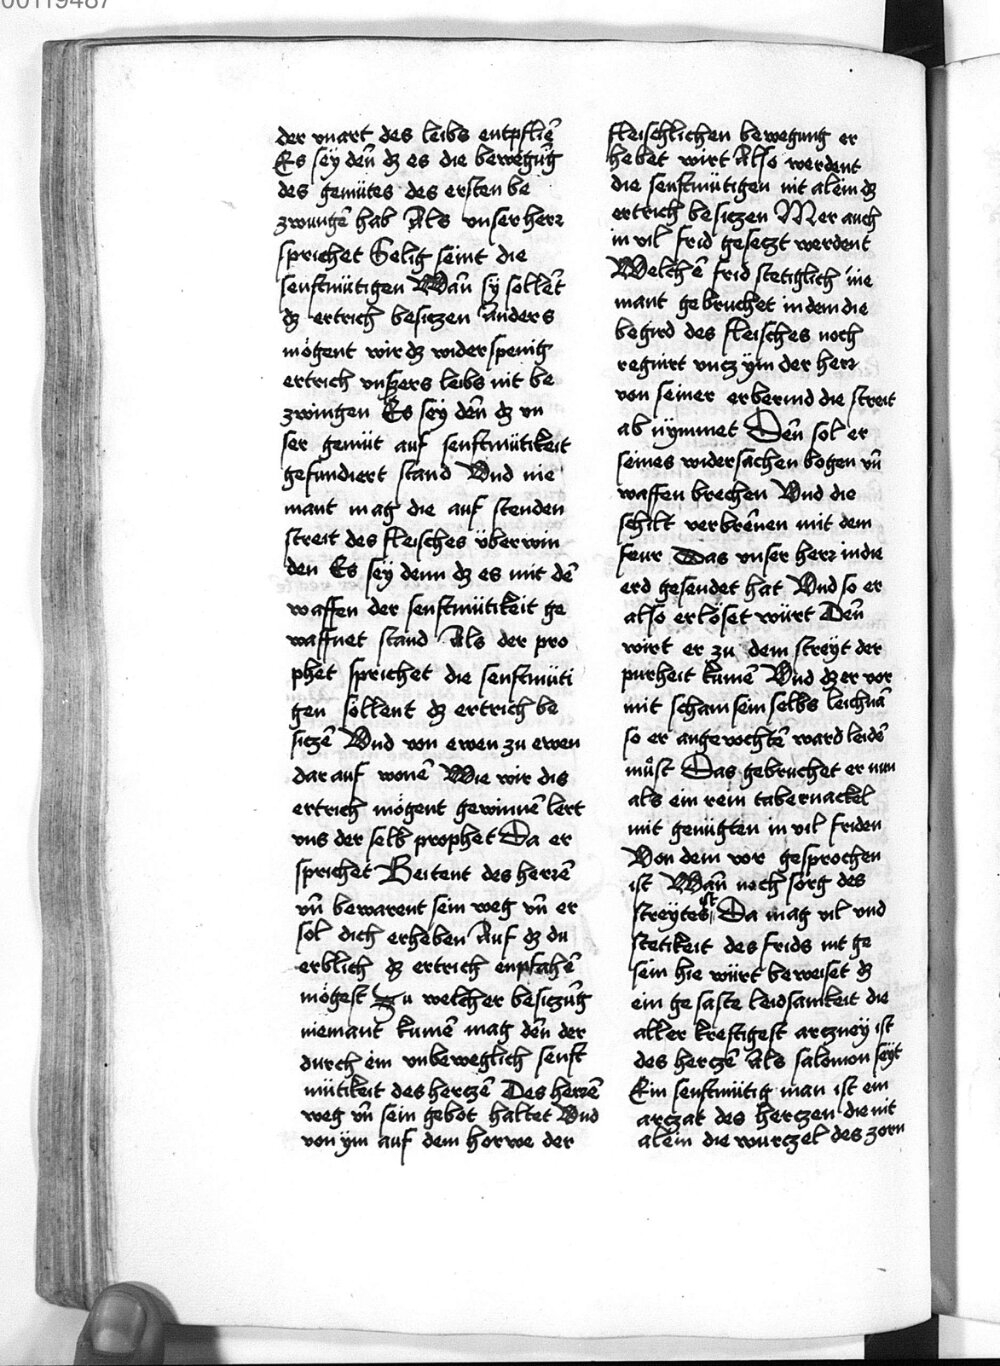 00119487
der vnart des leibs entpfliē
Es sey deñ dz es die bewegūg
des gemütes des ersten be
zwungē hab Als vnser herr
sprichet Selig seint die
senftmütigen Wañ sy sollēt
dz ertrich besiczen Anders
mögent wir dz widerspenig
ertrich vnsers leibs nit be
zwingen Es sey deñ dz vn
ser gemüt auf senftmütikeit
gefundiert stand Vnd nie
mant mag die auf stenden
streit des fleisches überwin
den Es sey denn dz es mit dē
waffen der senftmütikeit ge
waffnet stand Als der pro
phet sprichet die senftmüti
gen söllent dz ertrich be
siczē Vnd von ewen zu ewen
dar auf wonē Wie wir dis
ertrich mögent gewinnē lert
vns der selb prophet Da er
sprichet Beitent des herrē
vñ bewarent sein weg vñ er
sol dich erheben Auf dz du
erblich dz ertrich enpfahē
mögest Zu welcher besiczūg
niemant kumē mag deñ der
durch ein vnbeweglich senft
mütikeit des herczē Des herrē
weg vñ sein gebot haltet Vnd
von ym auf dem horwe der
fleischlichen bewegung er
hebet wirt Also werdent
die senftmütigen nit alein dz
ertrich besiczen Mer auch
in vil frid geseczt werdent
Welchē frid stetiglich nie
mant gebruchet in dem die
begird des fleisches noch
regnirt vncz ym der herr
von seiner erbermd die streit
ab nymmet Deñ sol er
seines widersachen bogen vñ
waffen brechen Vnd die
schilt verbrēnen mit dem
feur Das vnser herr in die
erd gesendet hat Vnd so er
also erlöset würt Deñ
wirt er zu dem streyt der
purheit kumē Vnd dz er vor
mit scham sein selbs leichnā
so er angevochtē ward leidē
müst Das gebruchet er nun
als ein rein tabernackel
mit genügten in vil friden
Von dem vor gesprochen
ist Wañ nach sorg des
streytes ist Da mag vil vnd
stetikeit des frids nit ge
sein hie würt beweiset dz
ein gesaste leidsamkeit die
aller kreftigest arczney ist
des herczē Als salomon seyt
Ein senftmütig man ist ein
arczat des herczen die nit
alein die wurczel des zorn